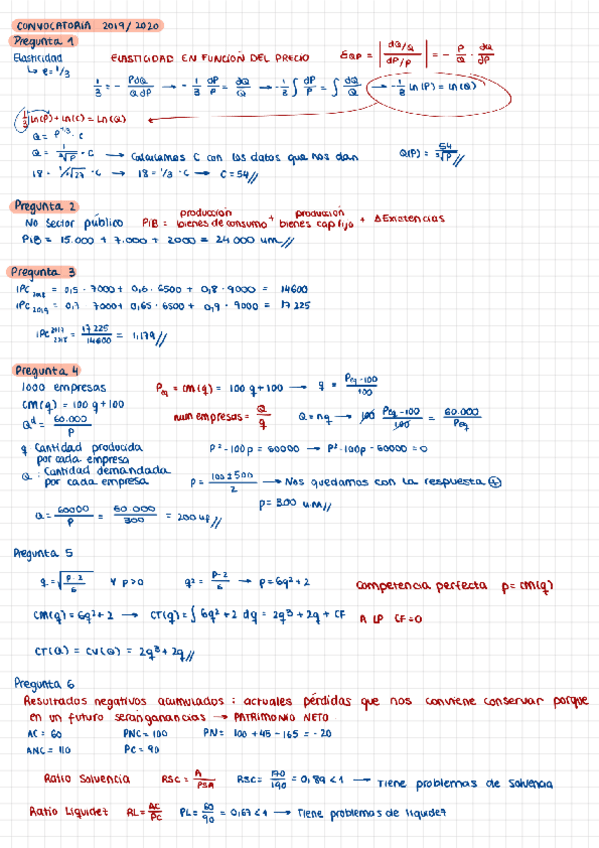 CONVOCATORIA 2019/2020
Pregunta 1
Elasticidad ELASTICIDAD EN FUNCIÓN DEL PRECIO EQP = | dQ/Q / dP/P | = - P/Q · dQ/dP
↳ e = 1/3
1/3 = - PdQ/QdP → - 1/3 dP/P = dQ/Q → - 1/3 ∫ dP/P = ∫ dQ/Q → - 1/3 ln(P) = ln(Q)
1/3 ln(P) + ln(C) = ln(Q)
Q = P^-1/3 · C
Q = 1/∛P · C → Calculamos C con los datos que nos dan Q(P) = 54/∛P //
18 = 1/∛27 · C → 18 = 1/3 · C → C = 54 //
Pregunta 2
No Sector público PIB = producción bienes de consumo + producción bienes cap fijo + Δ Existencias
PIB = 15.000 + 7.000 + 2000 = 24 000 um //
Pregunta 3
IPC 2018 = 0,5 · 7000 + 0,6 · 6500 + 0,8 · 9000 = 14600
IPC 2019 = 0,7 7000 + 0,65 · 6500 + 0,9 · 9000 = 17 225
= 17 225/14600 = 1,179 //
Pregunta 4
1000 empresas Peq = CM(q) = 100 q + 100 → q = Peq - 100/100
CM(q) = 100 q + 100
Q^d = 60.000/P num empresas = Q/q Q = nq → Peq - 100/100 = 60.000/Peq
q Cantidad producida por cada empresa P² - 100p = 60000 → P² - 100p - 60000 = 0
Q : Cantidad demandada por cada empresa P = 100 ± 500/2 → Nos quedamos con la respuesta +
p = 300 um //
Q = 60000/P = 60.000/300 = 200 uf //
Pregunta 5
q = √(p-2/6) ∀ p>0 q² = p-2/6 → p = 6q² + 2 Competencia perfecta p = CM(q)
CM(q) = 6q² + 2 → CT(q) = ∫ 6q² + 2 dq = 2q³ + 2q + CF A LP CF = 0
CT(Q) = CV(Q) = 2q³ + 2q //
Pregunta 6
Resultados negativos acumulados : actuales pérdidas que nos conviene conservar porque
en un futuro serán ganancias → PATRIMONIO NETO
AC = 60 PNC = 100 PN = 100 + 45 - 165 = - 20
ANC = 110 PC = 90
Ratio Solvencia RSC = A/PSA RSC = 170/190 = 0,89 < 1 → Tiene problemas de Solvencia
Ratio Liquidez RL = AC/PC RL = 60/90 = 0,67 < 1 → Tiene problemas de liquidez